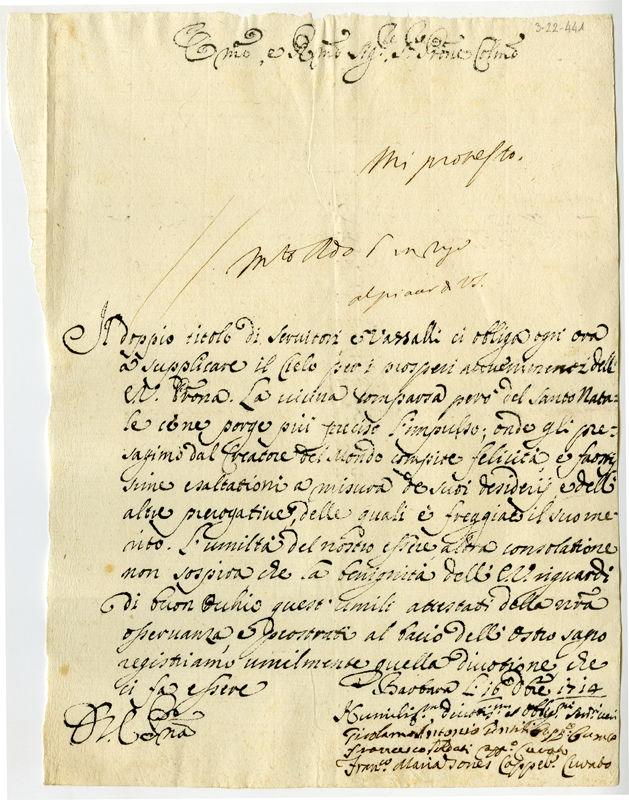 3-22-441
Emo, e Rmo Sigr, Sr Prone Colmo
Mi protesto.
al piacer di VS.
Il doppio titolo di Servitori e Vassalli ci obliga ogni ora
à supplicare il Cielo per i prosperi avvenimenti dell
Em. Vostra. La vicina comparsa però del Santo Nata-
le ce ne porge più preciso l'impulso; onde gli pre-
sagimo dal Creatore del Mondo compite felicità, e
sime esaltationi a misura de suoi desiderij, e dell
altre prerogative, delle quali è freggiato il suo me-
rito. L'umiltà del nostro essere altra consolatione
non sospira che la benignità dell' Em. riguardi
di buon Ochio quest' umili attestati della nrã
osservanza, e prostrati al bacio dell' Ostro sagro
registriamo umilmente quella divotione, che
ci fa essere
Barbara Li 16 Dbre 1714
Humiliss.mi divotis.mi et Oblig.mi Servitori
Girolamo Antonio
Francesco
Franco Maria Cappo Curato